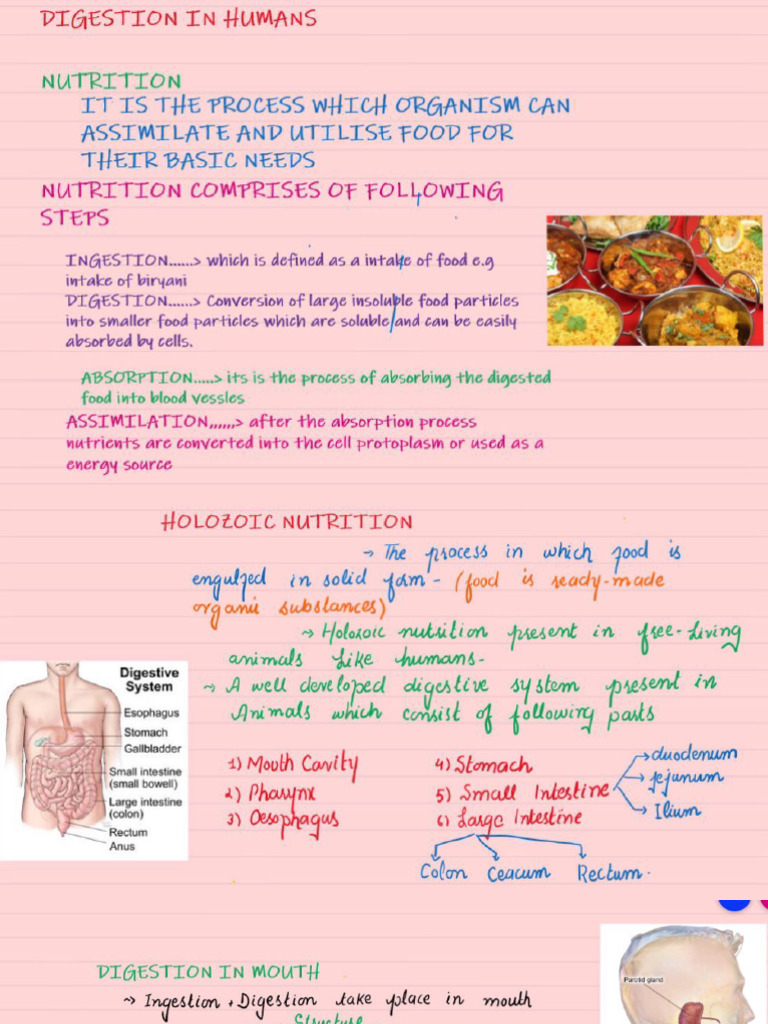 DIGESTION IN HUMANS
NUTRITION
IT IS THE PROCESS WHICH ORGANISM CAN
ASSIMILATE AND UTILISE FOOD FOR
THEIR BASIC NEEDS
NUTRITION COMPRISES OF FOLLOWING
STEPS
INGESTION......> which is defined as a intake of food e.g
intake of biryani
DIGESTION......> Conversion of large insoluble food particles
into smaller food particles which are soluble and can be easily
absorbed by cells.
ABSORPTION.....> its is the process of absorbing the digested
food into blood vessles
ASSIMILATION,,,,,,> after the absorption process
nutrients are converted into the cell protoplasm or used as a
energy source
HOLOZOIC NUTRITION
→ The process in which food is
engulfed in solid form - (food is ready-made
organic substances)
→ Holozoic nutrition present in free-living
animals like humans-
→ A well developed digestive system present in
Animals which consist of following parts
Digestive
System
Esophagus
Stomach
Gallbladder
Small intestine
(small bowell)
Large intestine
(colon)
Rectum
Anus
1) Mouth Cavity
2) Pharynx
3) Oesophagus
4) Stomach
5) Small Intestine
6) Large Intestine
→ duodenum
→ Jejunum
→ Ilium
Colon Ceacum Rectum.
DIGESTION IN MOUTH
→ Ingestion + Digestion take place in mouth
Structure
Parotid gland